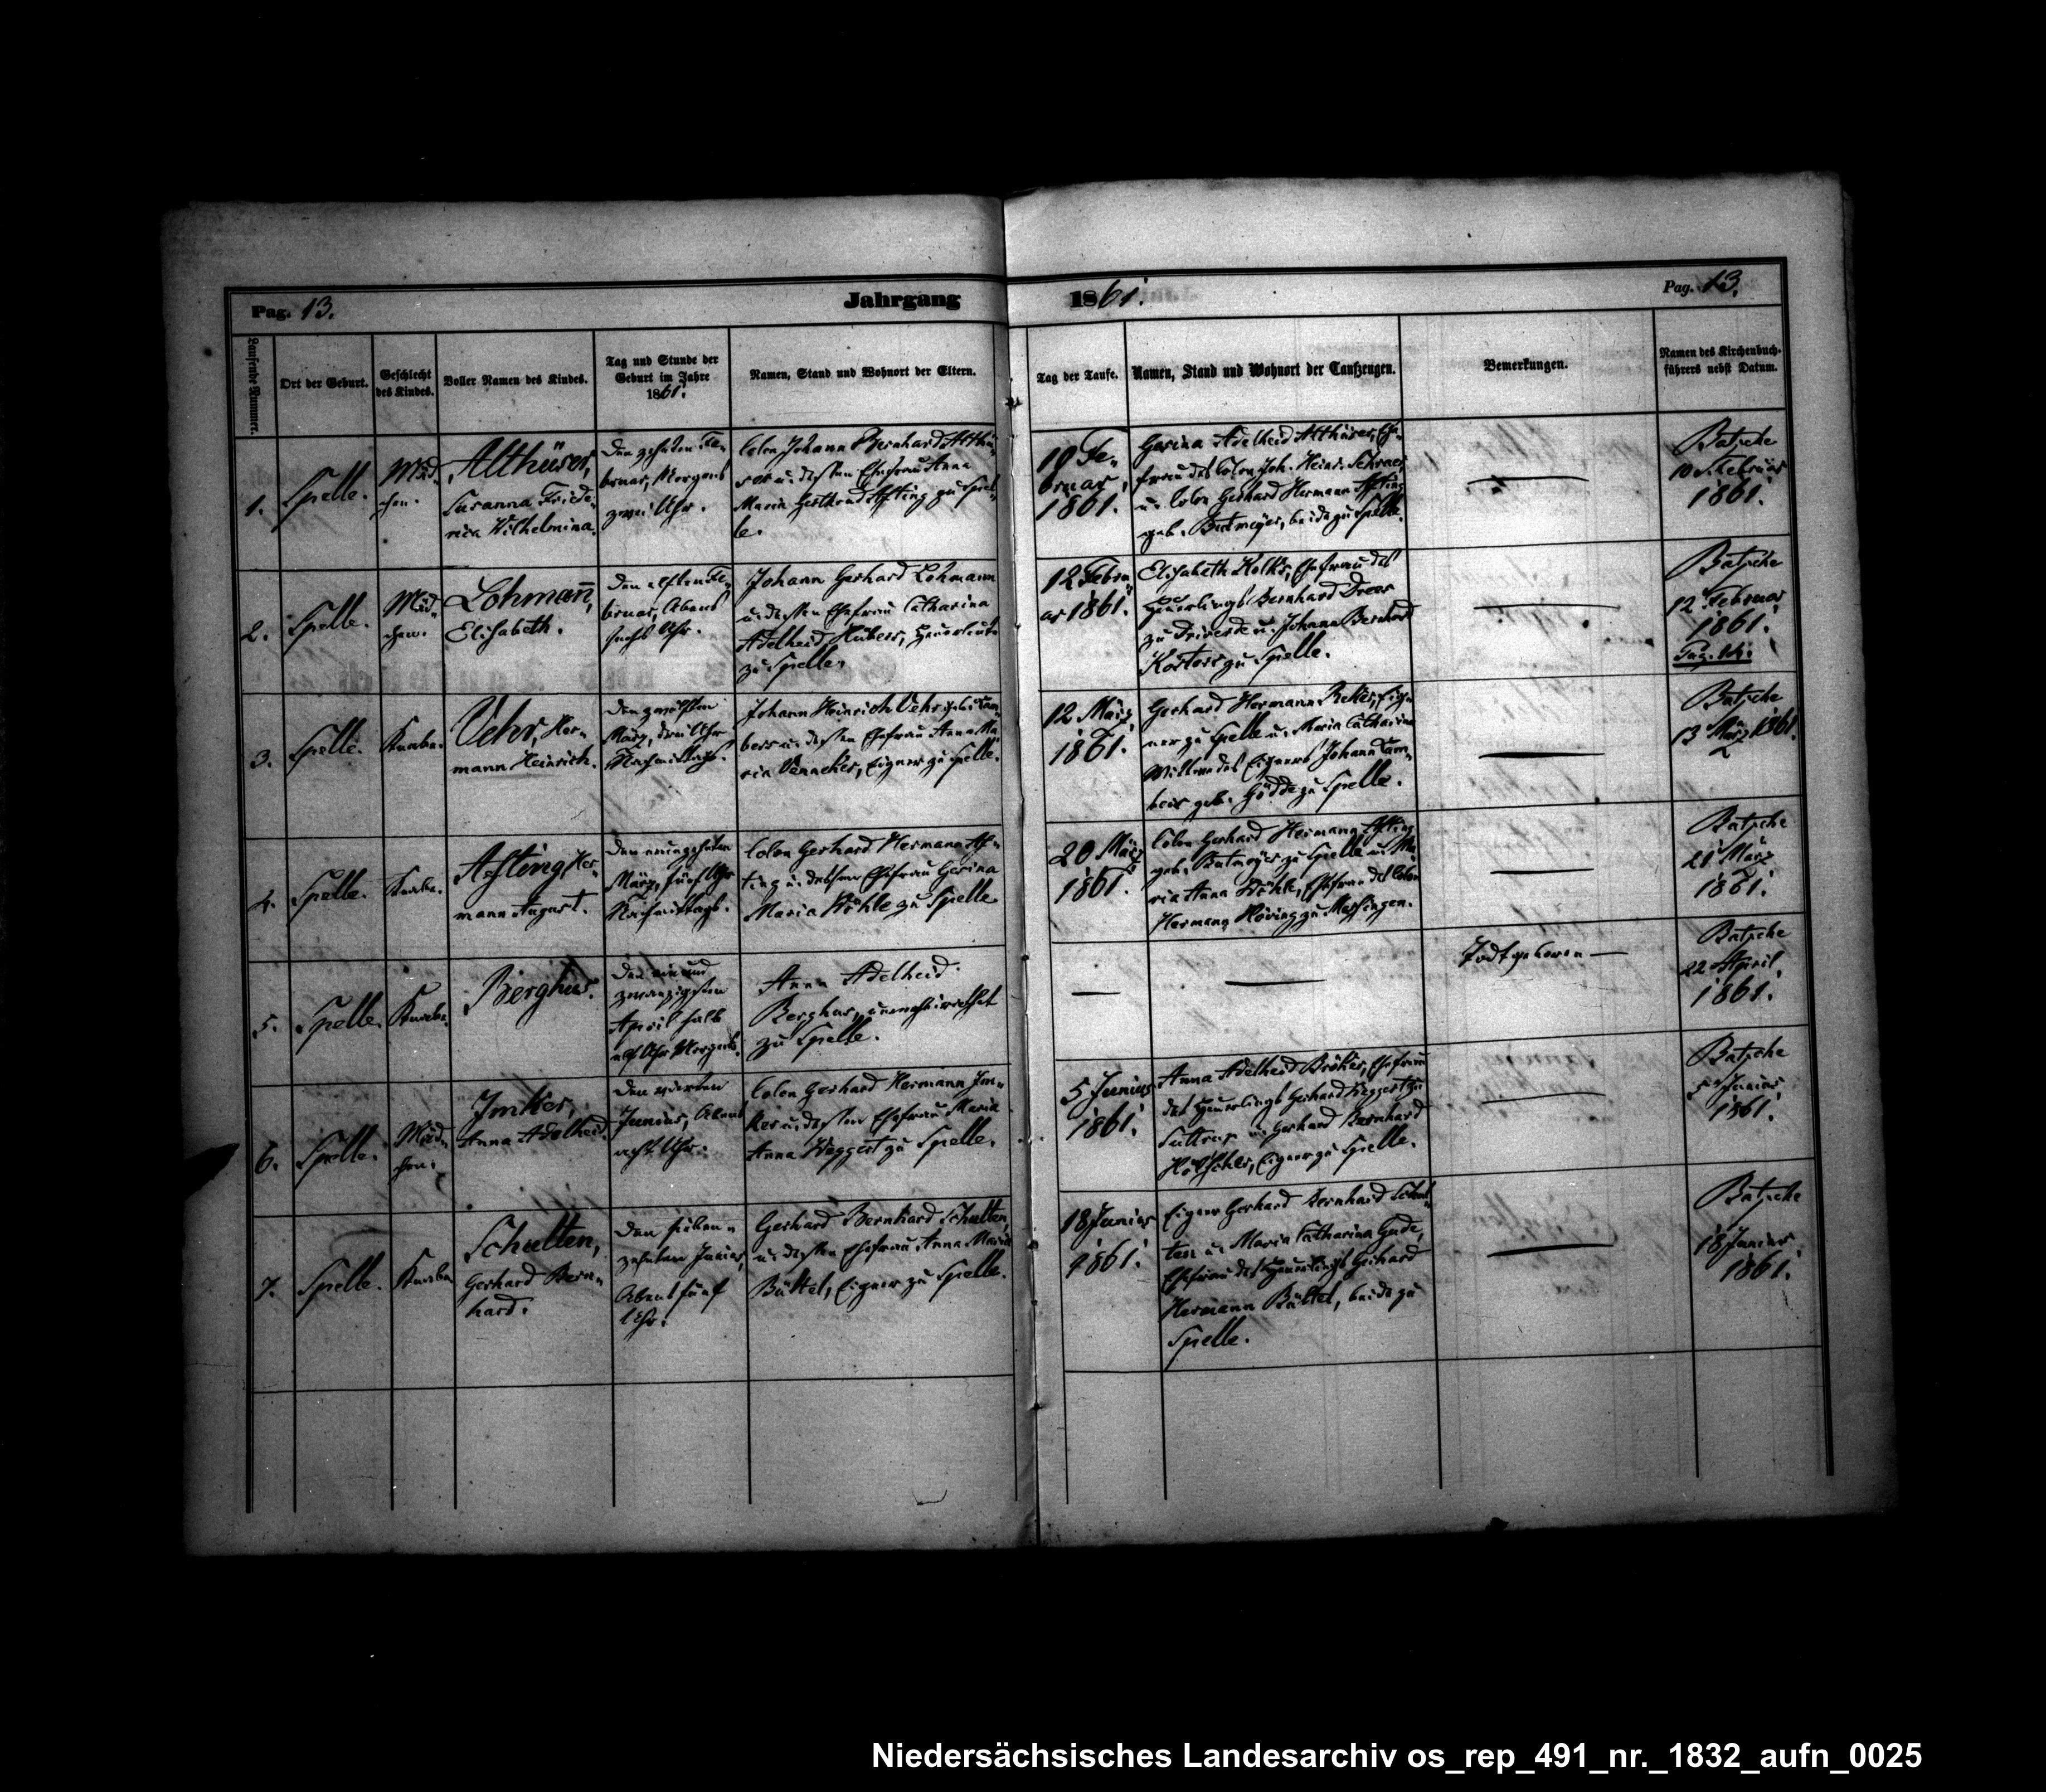 Pag. 13.
Jahrgang 1861.
Pag. 13.
Laufende Nummer.
Ort der Geburt.
Geschlecht
des Kindes.
Voller Namen des Kindes.
Tag und Stunde der
Geburt im Jahre
1861.
Namen, Stand und Wohnort der Eltern.
Tag der Taufe.
Namen, Stand und Wohnort der Taufzeugen.
Bemerkungen.
Namen des Kirchenbuch-
führers nebst Datum.
1.
Spelle.
Mäd-
chen.
Althüser,
Susanna Friede-
rica Wilhelmina.
Den zehnten Fe-
bruar, Morgens
zwei Uhr.
Colon Johann Bernhard Althü-
ser u. dessen Ehefrau Anna
Maria Gerthrud Afting zu Spel-
le.
10 Fe-
bruar,
1861.
Gesina Adelheid Althüser, Ehe-
frau des Colon Joh. Heinr.
u. Colon Gerhard Hermann Afting
geb. Butmeyer, beide zu Spelle.
Batsche
10 Februar
1861.
2.
Spelle.
Mäd-
chen.
Lohmann,
Elisabeth.
Den elften Fe-
bruar, Abens
sechs Uhr.
Johann Gerhard Lohmann
u. dessen Ehefrau Catharina
Adelheid Hübers, Heuerleute
zu Spelle.
12 Febru-
ar 1861.
Elisabeth Kolks, Ehefrau des
Heuerlings Bernhard Dreer
zu u. Johann Bernhard
Kösters zu Spelle.
Batsche
12 Februar
1861.
Pag. 14.
3.
Spelle.
Knabe.
Vehr, Her-
mann Heinrich.
Den zwölften
März, drei Uhr
Nachmittags.
Johann Heinrich Vehr
u. dessen Ehefrau Anna Ma-
ria Venneker, Eigner zu Spelle.
12 März
1861.
Gerhard Hermann Reker, Eig-
ner zu Spelle u. Maria Catharina
Wittwe des Eigners Johann
geb. Gödde zu Spelle.
Batsche
13 März 1861.
4.
Spelle.
Knabe.
Afting, Her-
mann August.
Den neunzehnten
März, fünf Uhr
Nachmittags.
Colon Gerhard Hermann Af-
ting u. dessen Ehefrau Gesina
Maria Wöhle zu Spelle
20 März
1861.
Colon Gerhard Hermann Afting
geb. Butmeyer zu Spelle u. Ma-
ria Anna Wöhle, Ehefrau des Colon
Hermann Höving zu Messingen.
Batsche
21 März
1861.
5.
Spelle.
Knabe.
Berghus.
Den ein und
zwanzigsten
April halb
elf Uhr Morgens.
Anna Adelheid
Berghus, unverheirathet
zu Spelle.
Todtgeboren
Batsche
22 April,
1861.
6.
Spelle.
Mäd-
chen.
Imker,
Anna Adelheid.
Den vierten
Junius, Abens
acht Uhr.
Colon Gerhard Hermann Im-
ker u. dessen Ehefrau Maria
Anna Weggert zu Spelle.
5 Junius
1861.
Anna Adelheid Bröker, Ehefrau
des Heuerlings Gerhard Weggert zu
Suttrup u. Gerhard Bernhard
Hölscher, Eigner zu Spelle.
Batsche
5 Junius
1861.
7.
Spelle.
Knabe
Schulten,
Gerhard Bern-
hard.
Den sieben-
zehnten Junius,
Abens fünf
Uhr.
Gerhard Bernhard Schulten,
u. dessen Ehefrau Anna Maria
Bültel, Eigner zu Spelle.
18 Junius
1861.
Eigner Gerhard Bernhard Schul-
ten u. Maria Catharina Gude,
Ehefrau des Heuerlings Gerhard
Hermann Bültel, beide zu
Spelle.
Batsche
18 Junius
1861.
Niedersächsisches Landesarchiv os_rep_491_nr._1832_aufn_0025